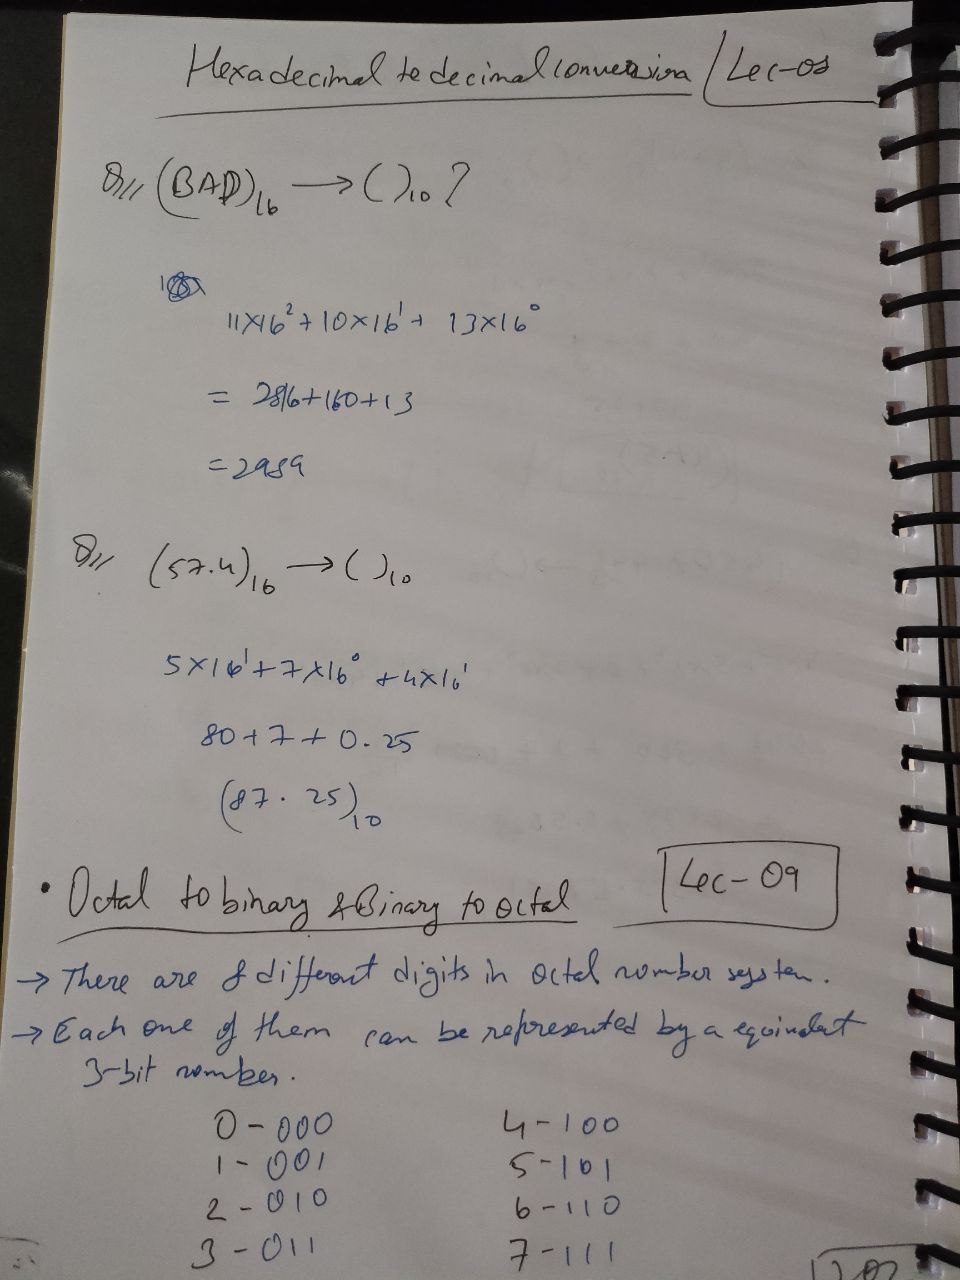 Hexadecimal to decimal conversion / Lec-08
Q// (BAD)₁₆ → ( )₁₀ ?
11×16² + 10×16¹ + 13×16⁰
= 2816+160+13
= 2989
Q// (57.4)₁₆ → ( )₁₀
5×16¹ + 7×16⁰ + 4×16¹
80 + 7 + 0.25
(87.25)₁₀
• Octal to binary & Binary to octal
Lec-09
→ There are 8 different digits in octal number system.
→ Each one of them can be represented by a equivalent
3-bit number.
0 - 000 4 - 100
1 - 001 5 - 101
2 - 010 6 - 110
3 - 011 7 - 111